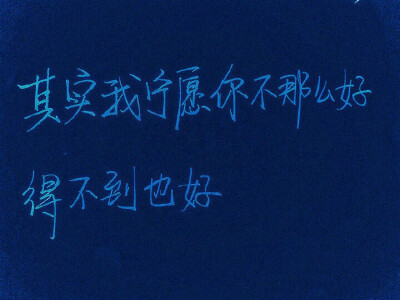 其实我宁愿你不那么好
得不到也好